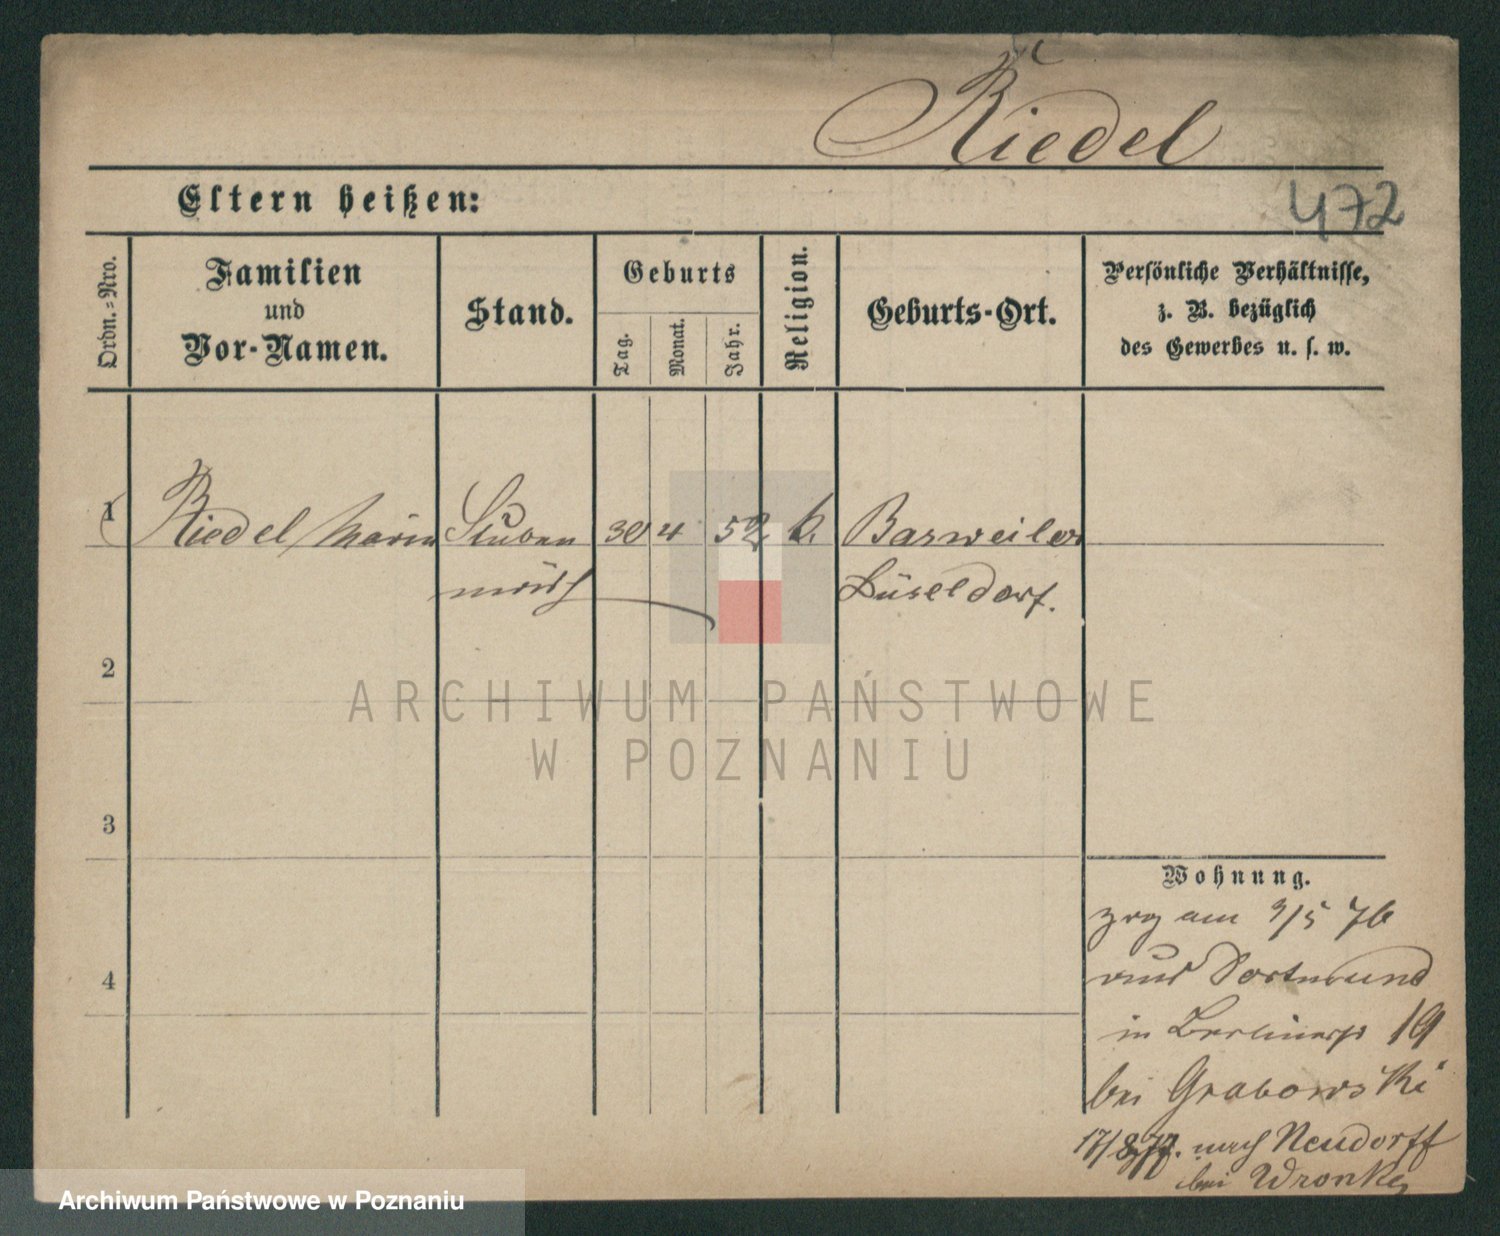 Riedel
Eltern heißen:
472
Ordn.-Nro.
Familien
und
Vor-Namen.
Stand.
Geburts
Tag.
Monat.
Jahr.
Religion.
Geburts-Ort.
Persönliche Verhältnisse,
z. B. bezüglich
des Gewerbes u. s. w.
1 Riedel Maria Stuben 30 4 52 k. Barweiler
mdch Düseldorf.
2
ARCHIWUM PAŃSTWOWE
W POZNANIU
3
Wohnung.
zog am 3/5 76
4
aus Dortmund
in Berlinerst 19
bei Grabowski
17/8 77. nach Neudorff
bei Wronke
Archiwum Państwowe w Poznaniu